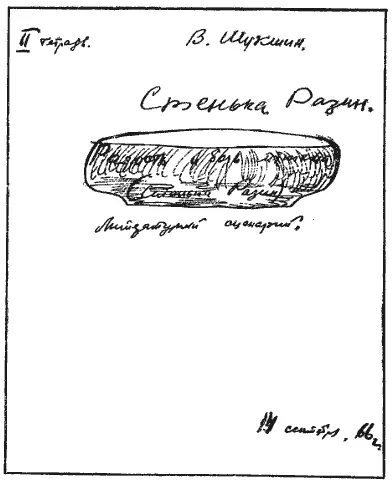 II тетрадь.
В. Шукшин.
Стенька Разин.
(Стенька Разин)
Литературный сценарий.
14 сентябр, 66 г.